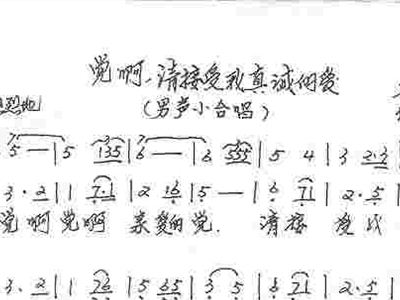 党啊、请接受我真诚的爱
(男声小合唱)
烈地
5 — | 5 135 | 6 — | 6 555 | 5 4 | 3 2·3
3·2 | 1 7·1 | 2 16 | 5 — | 6 71 | 2·5
党啊党啊 亲爱的党. 请接 受我
3·2 | 1 76 | 5 65 | 3 5 | 6 71 | 2·5